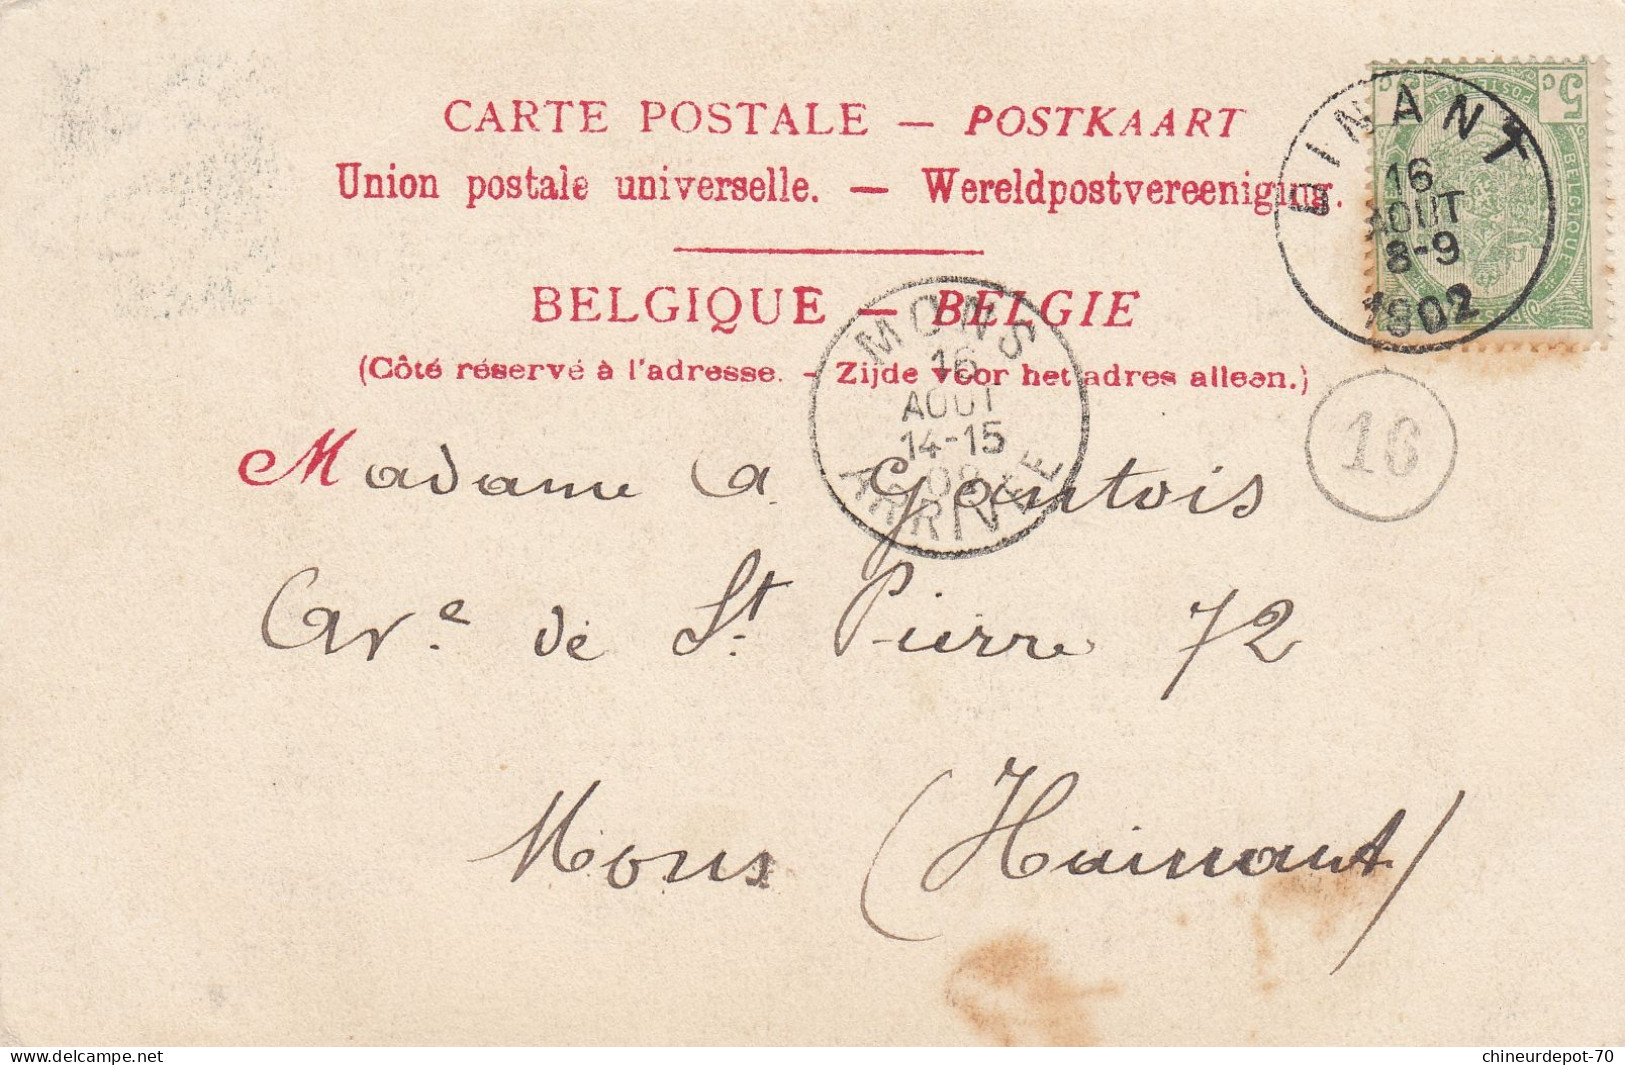 CARTE POSTALE — POSTKAART
Union postale universelle. — Wereldpostvereeniging.
BELGIQUE — BELGIE
(Côté réservé à l'adresse. - Zijde voor het adres alleen.)
DINANT
16
AOUT
8-9
1902
5 c c
POSTERIJEN BELGIQUE
MONS
16
AOUT
14-15
02
ARRIVÉE
16
Madame A. Gontois
Av.e de St. Pierre 72
Mons (Hainaut)
www.delcampe.net
chineurdepot-70